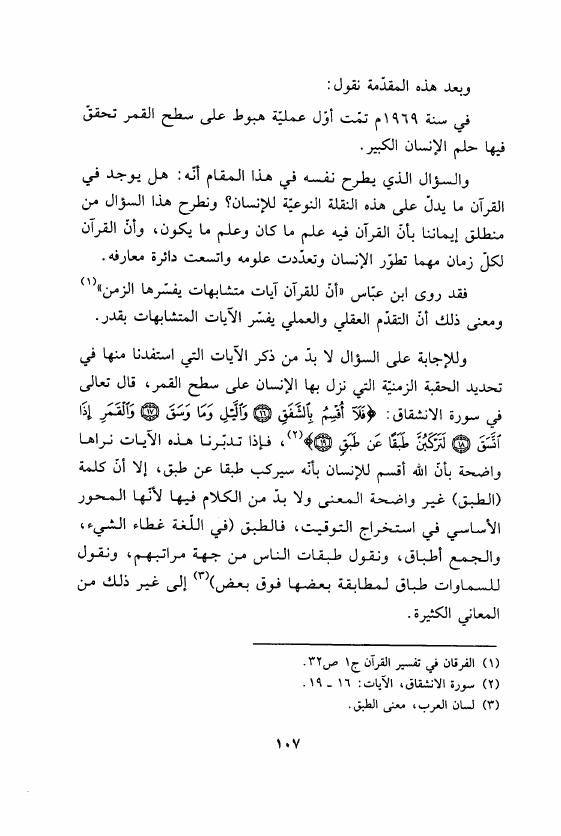 وبعد هذه المقدّمة نقول:
في سنة ١٩٦٩م تمّت أوّل عمليّة هبوط على سطح القمر تحقق
فيها حلم الإنسان الكبير.
والسؤال الذي يطرح نفسه في هذا المقام أنّه: هل يوجد في
القرآن ما يدلّ على هذه النقلة النوعيّة للإنسان؟ ونطرح هذا السؤال من
منطلق إيماننا بأنّ القرآن فيه علم ما كان وعلم ما يكون، وأنّ القرآن
لكلّ زمان مهما تطوّر الإنسان وتعدّدت علومه واتسعت دائرة معارفه.
فقد روى ابن عبّاس «أنّ للقرآن آيات متشابهات يفسّرها الزمن»(١)
ومعنى ذلك أنّ التقدّم العقلي والعملي يفسّر الآيات المتشابهات بقدر.
وللإجابة على السؤال لا بدّ من ذكر الآيات التي استفدنا منها في
تحديد الحقبة الزمنيّة التي نزل بها الإنسان على سطح القمر، قال تعالى
في سورة الانشقاق: ﴿فَلَآ أُقْسِمُ بِٱلشَّفَقِ ۝١٦ وَٱلَّيْلِ وَمَا وَسَقَ ۝١٧ وَٱلْقَمَرِ إِذَا
ٱتَّسَقَ ۝١٨ لَتَرْكَبُنَّ طَبَقًا عَن طَبَقٍ ۝١٩﴾(٢)، فإذا تدبّرنا هذه الآيات نراها
واضحة بأنّ الله أقسم للإنسان بأنّه سيركب طبقا عن طبق، إلا أنّ كلمة
(الطبق) غير واضحة المعنى ولا بدّ من الكلام فيها لأنّها المحور
الأساسي في استخراج التوقيت، فالطبق (في اللّغة غطاء الشيء،
والجمع أطباق، ونقول طبقات الناس من جهة مراتبهم، ونقول
للسماوات طباق لمطابقة بعضها فوق بعض)(٣) إلى غير ذلك من
المعاني الكثيرة.
(١) الفرقان في تفسير القرآن ج١ ص٣٢.
(٢) سورة الانشقاق، الآيات: ١٦ ـ ١٩.
(٣) لسان العرب، معنى الطبق.
١٠٧